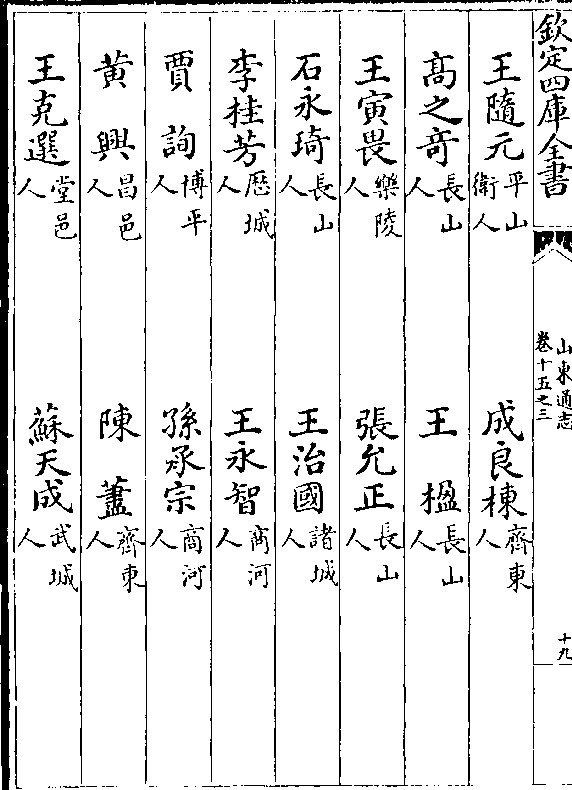 欽定四庫全書
山東通志
卷十五之三
十九
王隨元平山衛人 成良棟齊東人
髙之竒長山人 王楹長山人
王寅畏樂陵人 張允正長山人
石永琦長山人 王治國諸城人
李桂芳歴城人 王永智商河人
賈詢博平人 孫承宗商河人
黄興昌邑人 陳藎齊東人
王克選堂邑人 蘇天成武城人